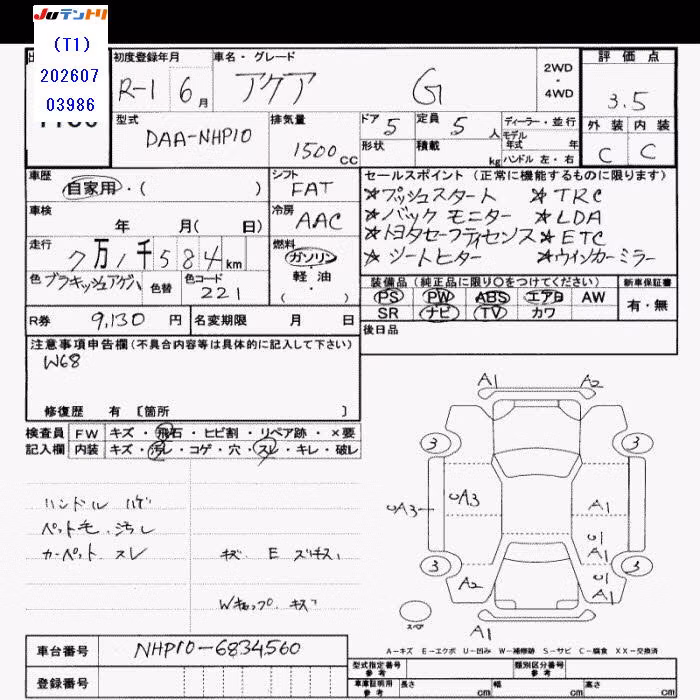 JUテントリ
(T1)
202607
03986
初度登録年月 車名・グレード 2WD・4WD 評価点
R-1 6月 アクア G 3.5
型式 DAA-NHP10 排気量 1500cc ドア 5 定員 5人 ディーラー・並行 外装 内装
形状 積載 kg モデル年式 年 ハンドル 左・右 C C
車歴 自家用・( ) シフト FAT
セールスポイント(正常に機能するものに限ります)
☆プッシュスタート ☆TRC
☆バックモニター ☆LDA
☆トヨタセーフティセンス ☆ETC
☆シートヒター ☆ウインカーミラー
車検 年 月( 日) 冷房 AAC
走行 7万1千584km 燃料 ガソリン・軽・油( )
色 ブラキッシュアゲハ 色替 色コード 221
装備品(純正品に限り○をつけてください) 新車保証書
PS PW ABS エアB AW 有・無
SR ナビ TV カワ
R券 9,130円 名変期限 月 日 後日品
注意事項申告欄(不具合内容等は具体的に記入して下さい)
W68
修復歴 有 [箇所 ]
検査員 FW キズ・飛石・ヒビ割・リペア跡・×要
記入欄 内装 キズ・汚レ・コゲ・穴・スレ・キレ・破レ
ハンドル ハゲ
ペット毛、汚レ
カーペット スレ キズ E
Wキャップ キズ
A1 A2
3 3
A3 A3 A1
A1
3 A2 A1 3
スペア A1
A-キズ E-エクボ U-凹み W-補修跡 S-サビ C-腐食 XX-交換済
車台番号 NHP10-6834560
型式指定番号 参考 類別区分番号 参考
登録番号 車庫証明用 参考 長さ cm 幅 cm 高さ cm